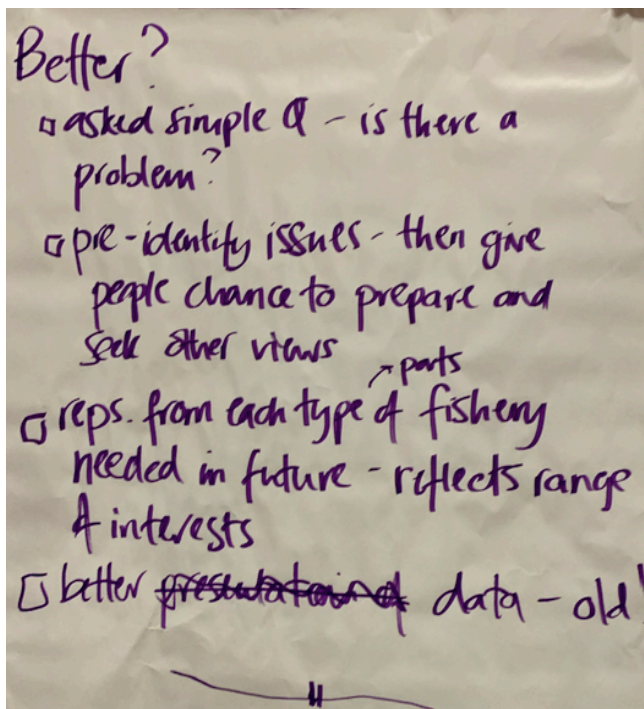 Better?
□ asked simple Q - is there a
problem?
□ pre-identify issues - then give
people chance to prepare and
seek other views
↗ parts
□ reps. from each type of fishery
needed in future - reflects range
of interests
□ better data - old!